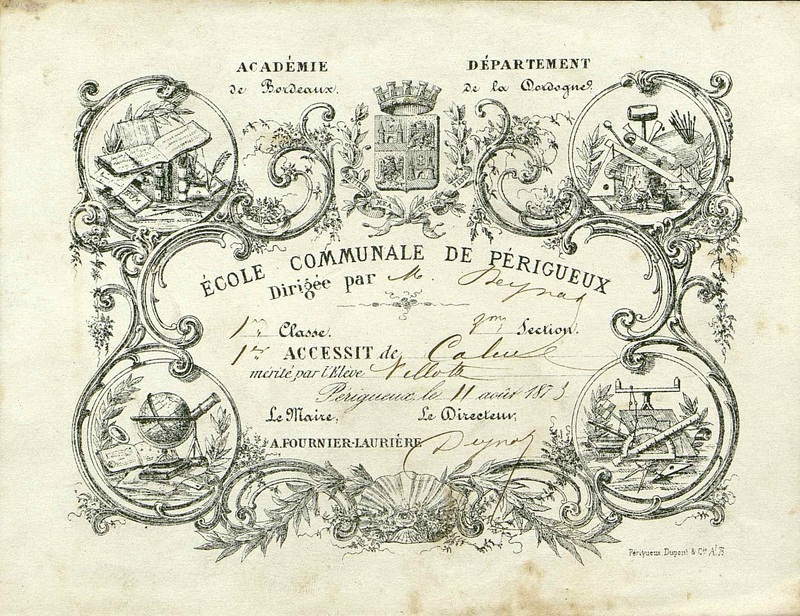 ACADÉMIE
de Bordeaux.
DÉPARTEMENT
de la Dordogne.
ÉCOLE COMMUNALE DE PÉRIGUEUX
Dirigée par M. Deynat
1re Classe. 2me Section.
1er ACCESSIT de Calcul
mérité par l'Elève Villotte
Périgueux, le 11 août 1873
Le Maire, Le Directeur,
A. FOURNIER-LAURIÈRE Deynat
Périgueux, Dupont & Cie